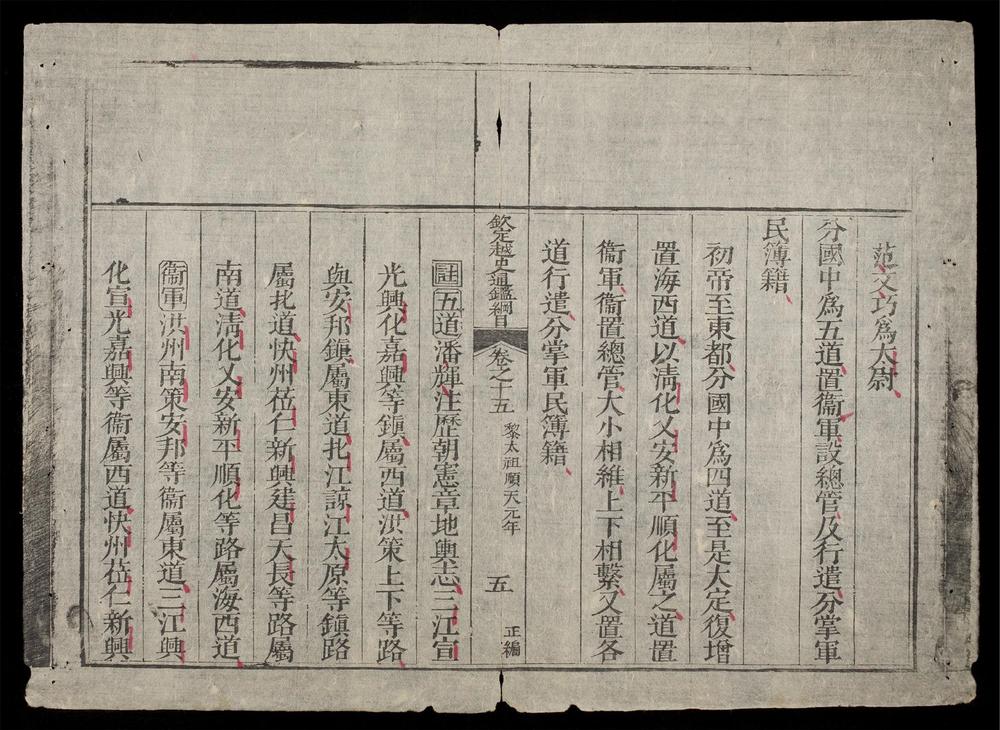 范文巧爲太尉
分國中爲五道置衞軍設總管及行遣分掌軍
民簿籍
初帝至東都分國中爲四道至是大定復增
置海西道以淸化乂安新平順化屬之道置
衞軍衞置總管大小相維上下相繫又置各
道行遣分掌軍民簿籍
欽定越史通鑑綱目 卷之十五 黎太祖順天元年 五 正編
註 五道潘輝注歷朝憲章地輿志三江宣
光興化嘉興等鎭屬西道洪策上下等路
與安邦鎭屬東道北江諒江太原等鎭路
屬北道快州莅仁新興建昌天長等路屬
南道淸化乂安新平順化等路屬海西道
衞軍洪州南策安邦等衞屬東道三江興
化宣光嘉興等衞屬西道快州莅仁新興